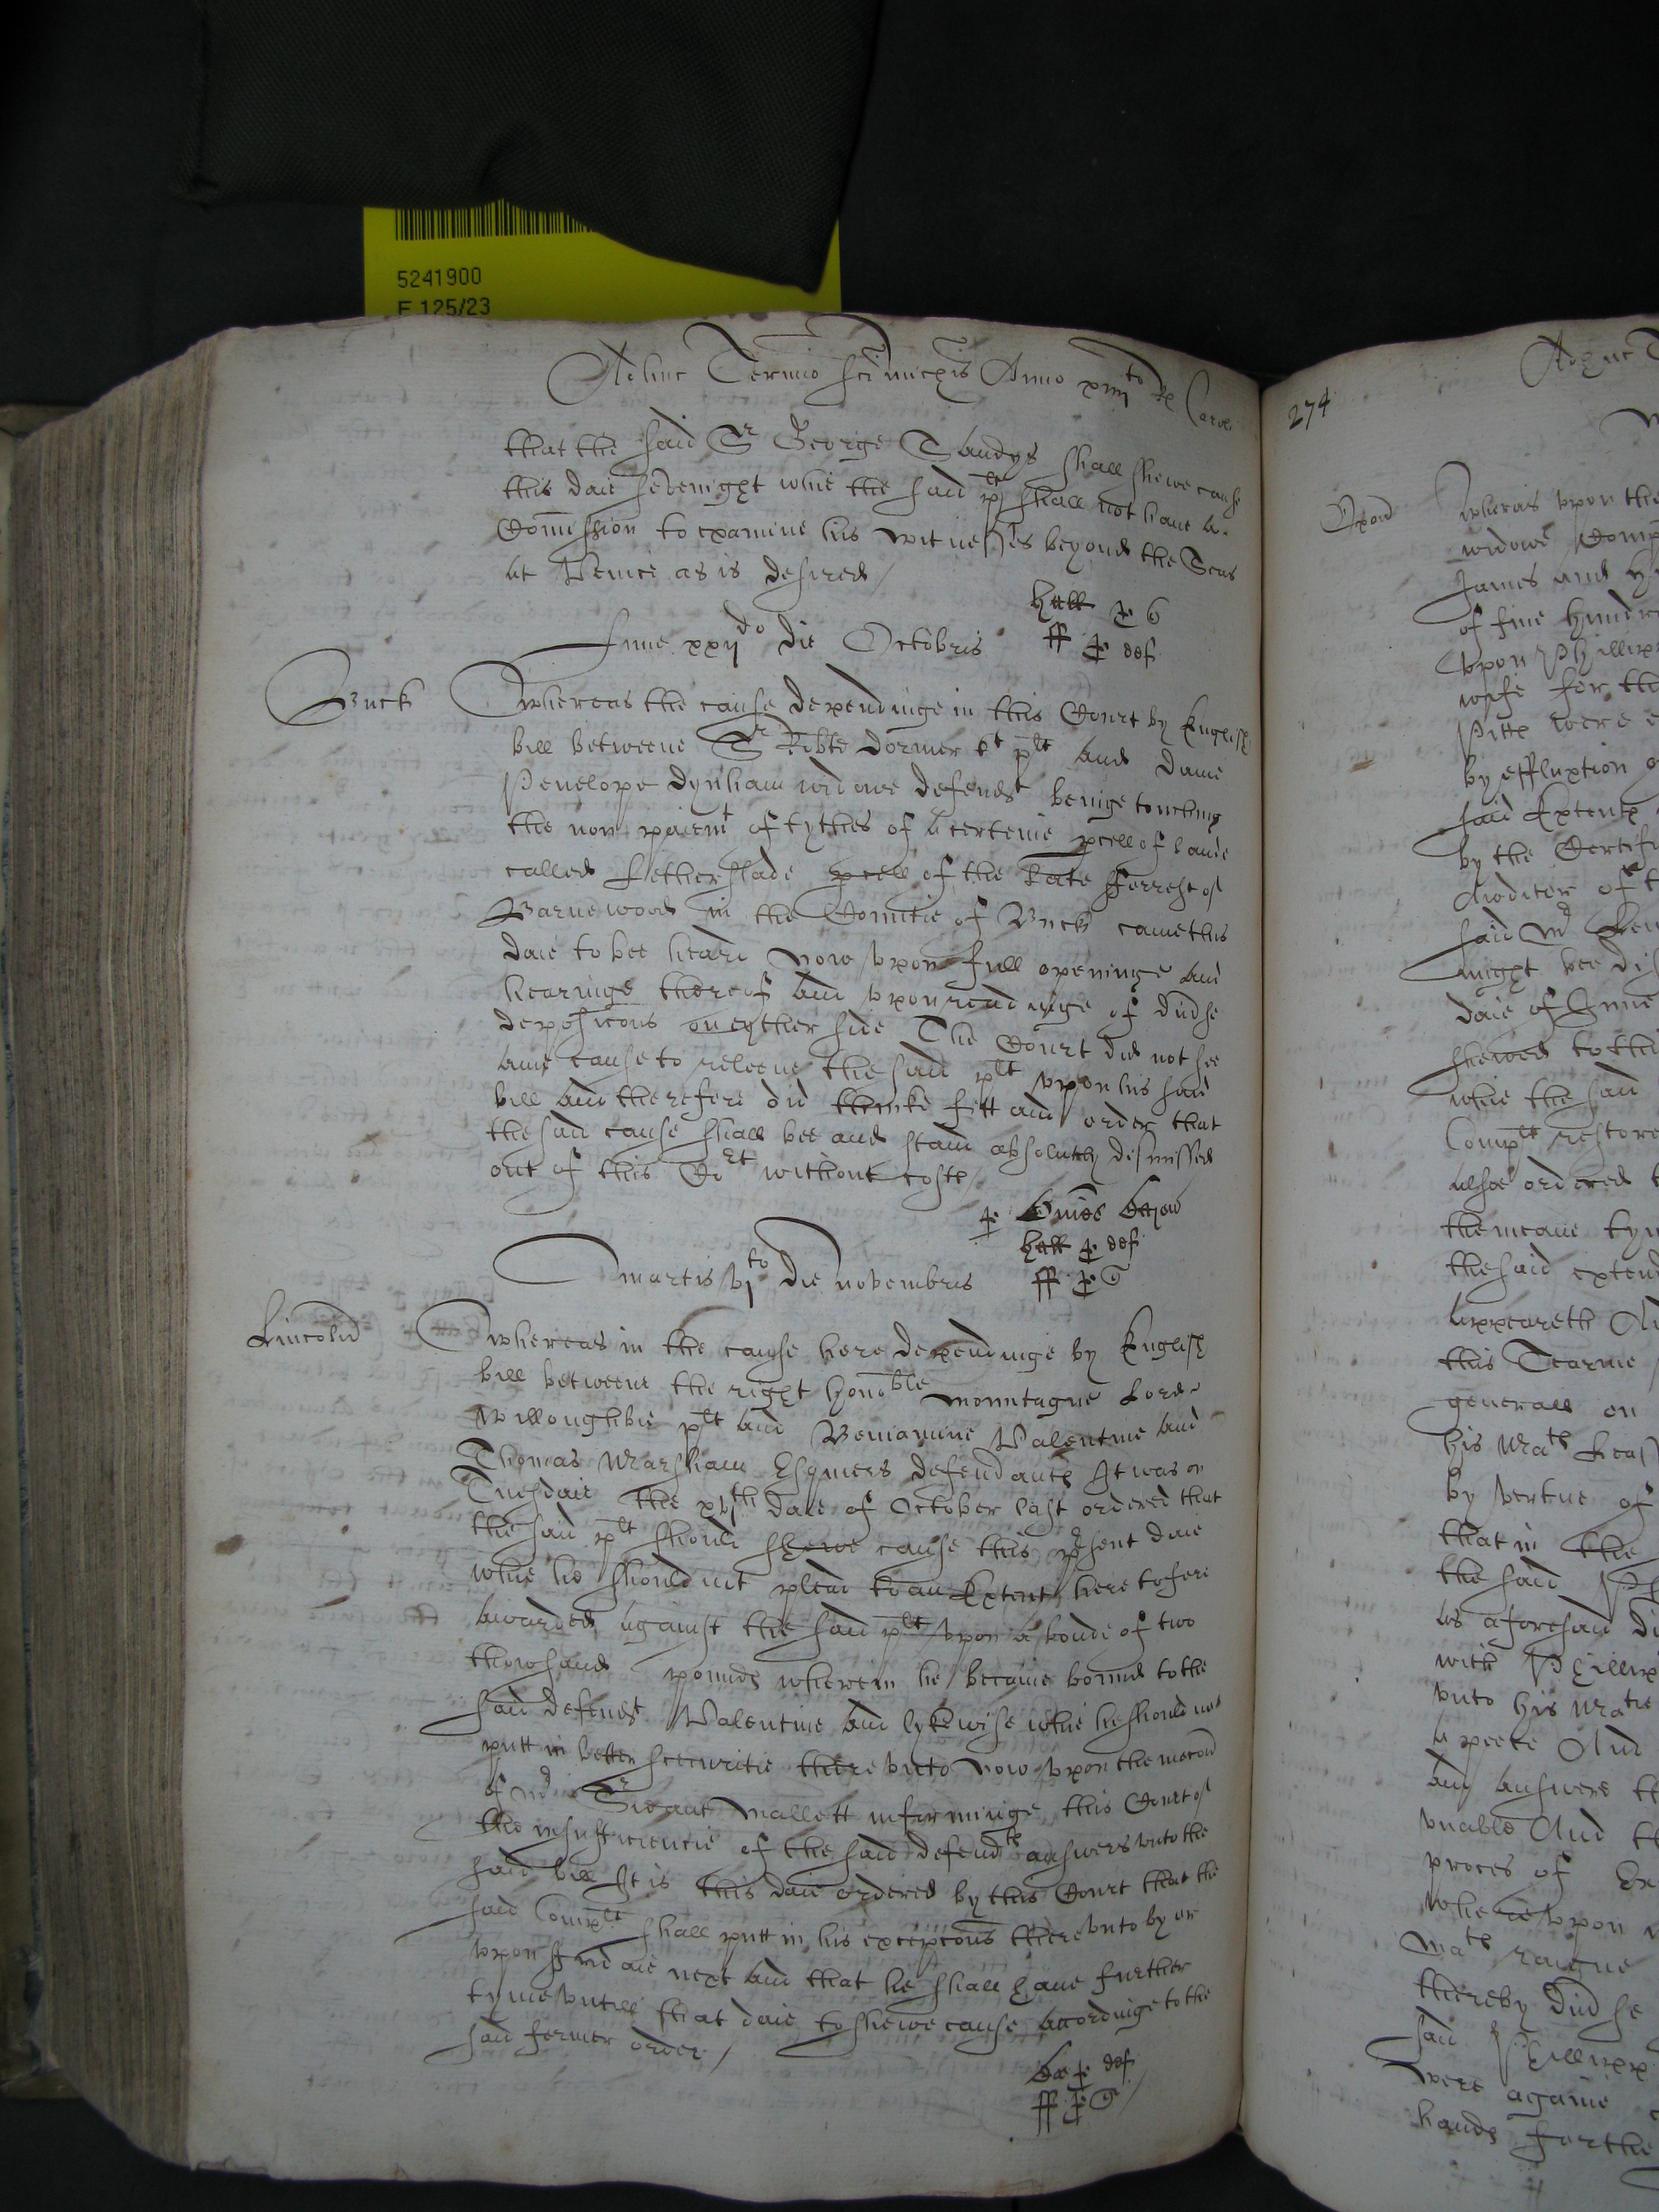 5241900
E 125/23
Adhuc Termio Sci Michis Anno xiiiito Rx Caroli
that the said Sr George Sandys shall shewe cause
this daie sevenight whie the said plt shall not haue a
Comission to examine his witnesses beyond the Seas
at Venice as is desired
Hall p
ff p def
Lune xxijdo die Octobris
Buck
Whereas the cause dependinge in this Court by English
bill betweene Sr Robte Dormer kt plt and Dame
Penelope Dynham widowe defendt beinge touching
the non paiemt of tythes of a certeine pcell of land
called Fetherslade pcell of the late fforrest of
Barnewood in the Countie of Buck came this
daie to bee heard Now upon full openinge and
hearinge thereof and upon readinge of divse
deposicons on eyther side The Court did not see
anie cause to releeve the said plt upon his said
bill and therefore did thinke fitt and order that
the said cause shall bee and stand absolutely dismissed
out of this Cort without costs
Hall p def
ff p
Martis vjto die Novembris
Lincolne
Whereas in the cause here dependinge by English
bill betweene the right honoble Mountague Lord
Willoughbie plt and Beniamine Valentine and
Thomas Marsham Esquiers defendants It was on
Tuesdaie the xvjth daie of October last ordered that
the said plt should shewe cause this psent daie
whie he should not plead to an Extent heretofore
awarded against the said plt upon a bond of two
thowsand pounds wherein he became bound to the
said defendt Valentine and lykewise whie he should not
putt in better securitie thereunto Now upon the mocon
of Mr Sriant Mallett informinge this Court of
the insufficiencie of the said defendts answers unto the
said bill It is this daie ordered by this Court that the
said Complt shall putt in his excepcons thereunto by or
upon ffridaie next and that he shall haue further
tyme untill that daie to shewe cause accordinge to the
said former order
p def
ff p
274
Oxon
Whereas upon the
widowe Comp
James and
of five hundre
upon Phillipp
wife for the
Pitts were
by effluxion of
said Extents
by the Certifi
Auditor of t
said Mr
might bee dis
daie of June
shewed to thi
whie the said
Complt restore
alsoe ordered
the meane tym
the said extend
appeareth
this Tearme
generall on
his Mats
by vertue of
that in the
the said Ph
as aforesaid
with Phillipp
unto his Matie
And
any answere
unable And th
proces of
whereupon
Mats raigne
thereby divse
said Phillipp
were againe
hands for the